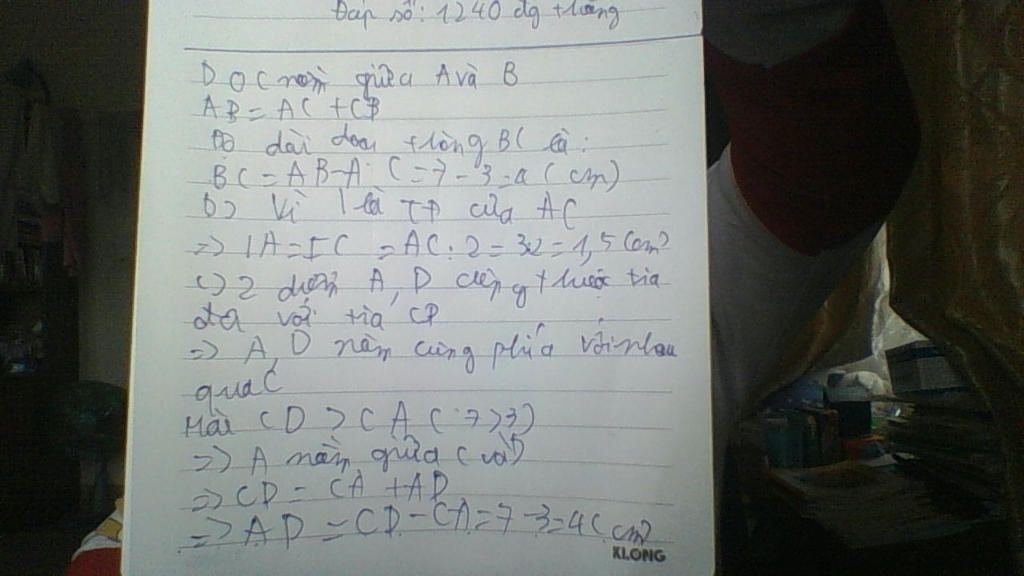 Đáp số: 1240 đg thẳng
Do C nằm giữa A và B
AB = AC + CB
Độ dài đoạn thẳng BC là:
BC = AB - AC = 7 - 3 = 4 (cm)
b) Vì I là TĐ của AC
=> IA = IC = AC : 2 = 3:2 = 1,5 (cm)
c) 2 điểm A, D cùng thuộc tia
đối với tia CB
=> A, D nằm cùng phía với nhau
qua C
Mài CD > CA (7 > 3)
=> A nằm giữa C và D
=> CD = CA + AD
=> AD = CD - CA = 7 - 3 = 4 (cm)
KLONG